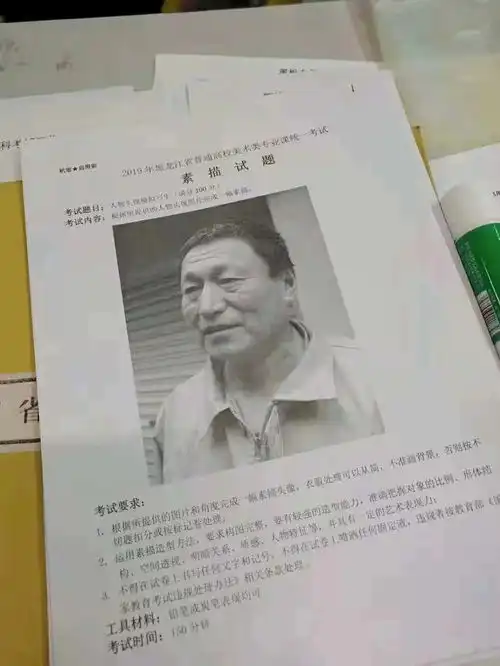 机密★启用前
2019年黑龙江省普通高校美术类专业课统一考试
素 描 试 题
考试题目：人物头像模拟写生（满分200分）
考试内容：根据所提供的人物头像照片完成一幅素描。
考试要求：
1. 根据所提供的图片和角度完成一幅素描头像，衣服处理可以从简，不准画背景，否则按不
切题扣分或按标记卷处理。
2. 运用素描造型方法，要求构图完整，要有较强的造型能力，准确把握对象的比例、形体结
构、空间透视、明暗关系、质感、人物特征等，并具有一定的艺术表现力；
3. 不得在试卷上书写任何文字和记号，不得在试卷上喷洒任何固定液，违规者按教育部《国
家教育考试违规处理办法》相关条款处理。
工具材料：铅笔或炭笔表现均可
考试时间：150分钟
省